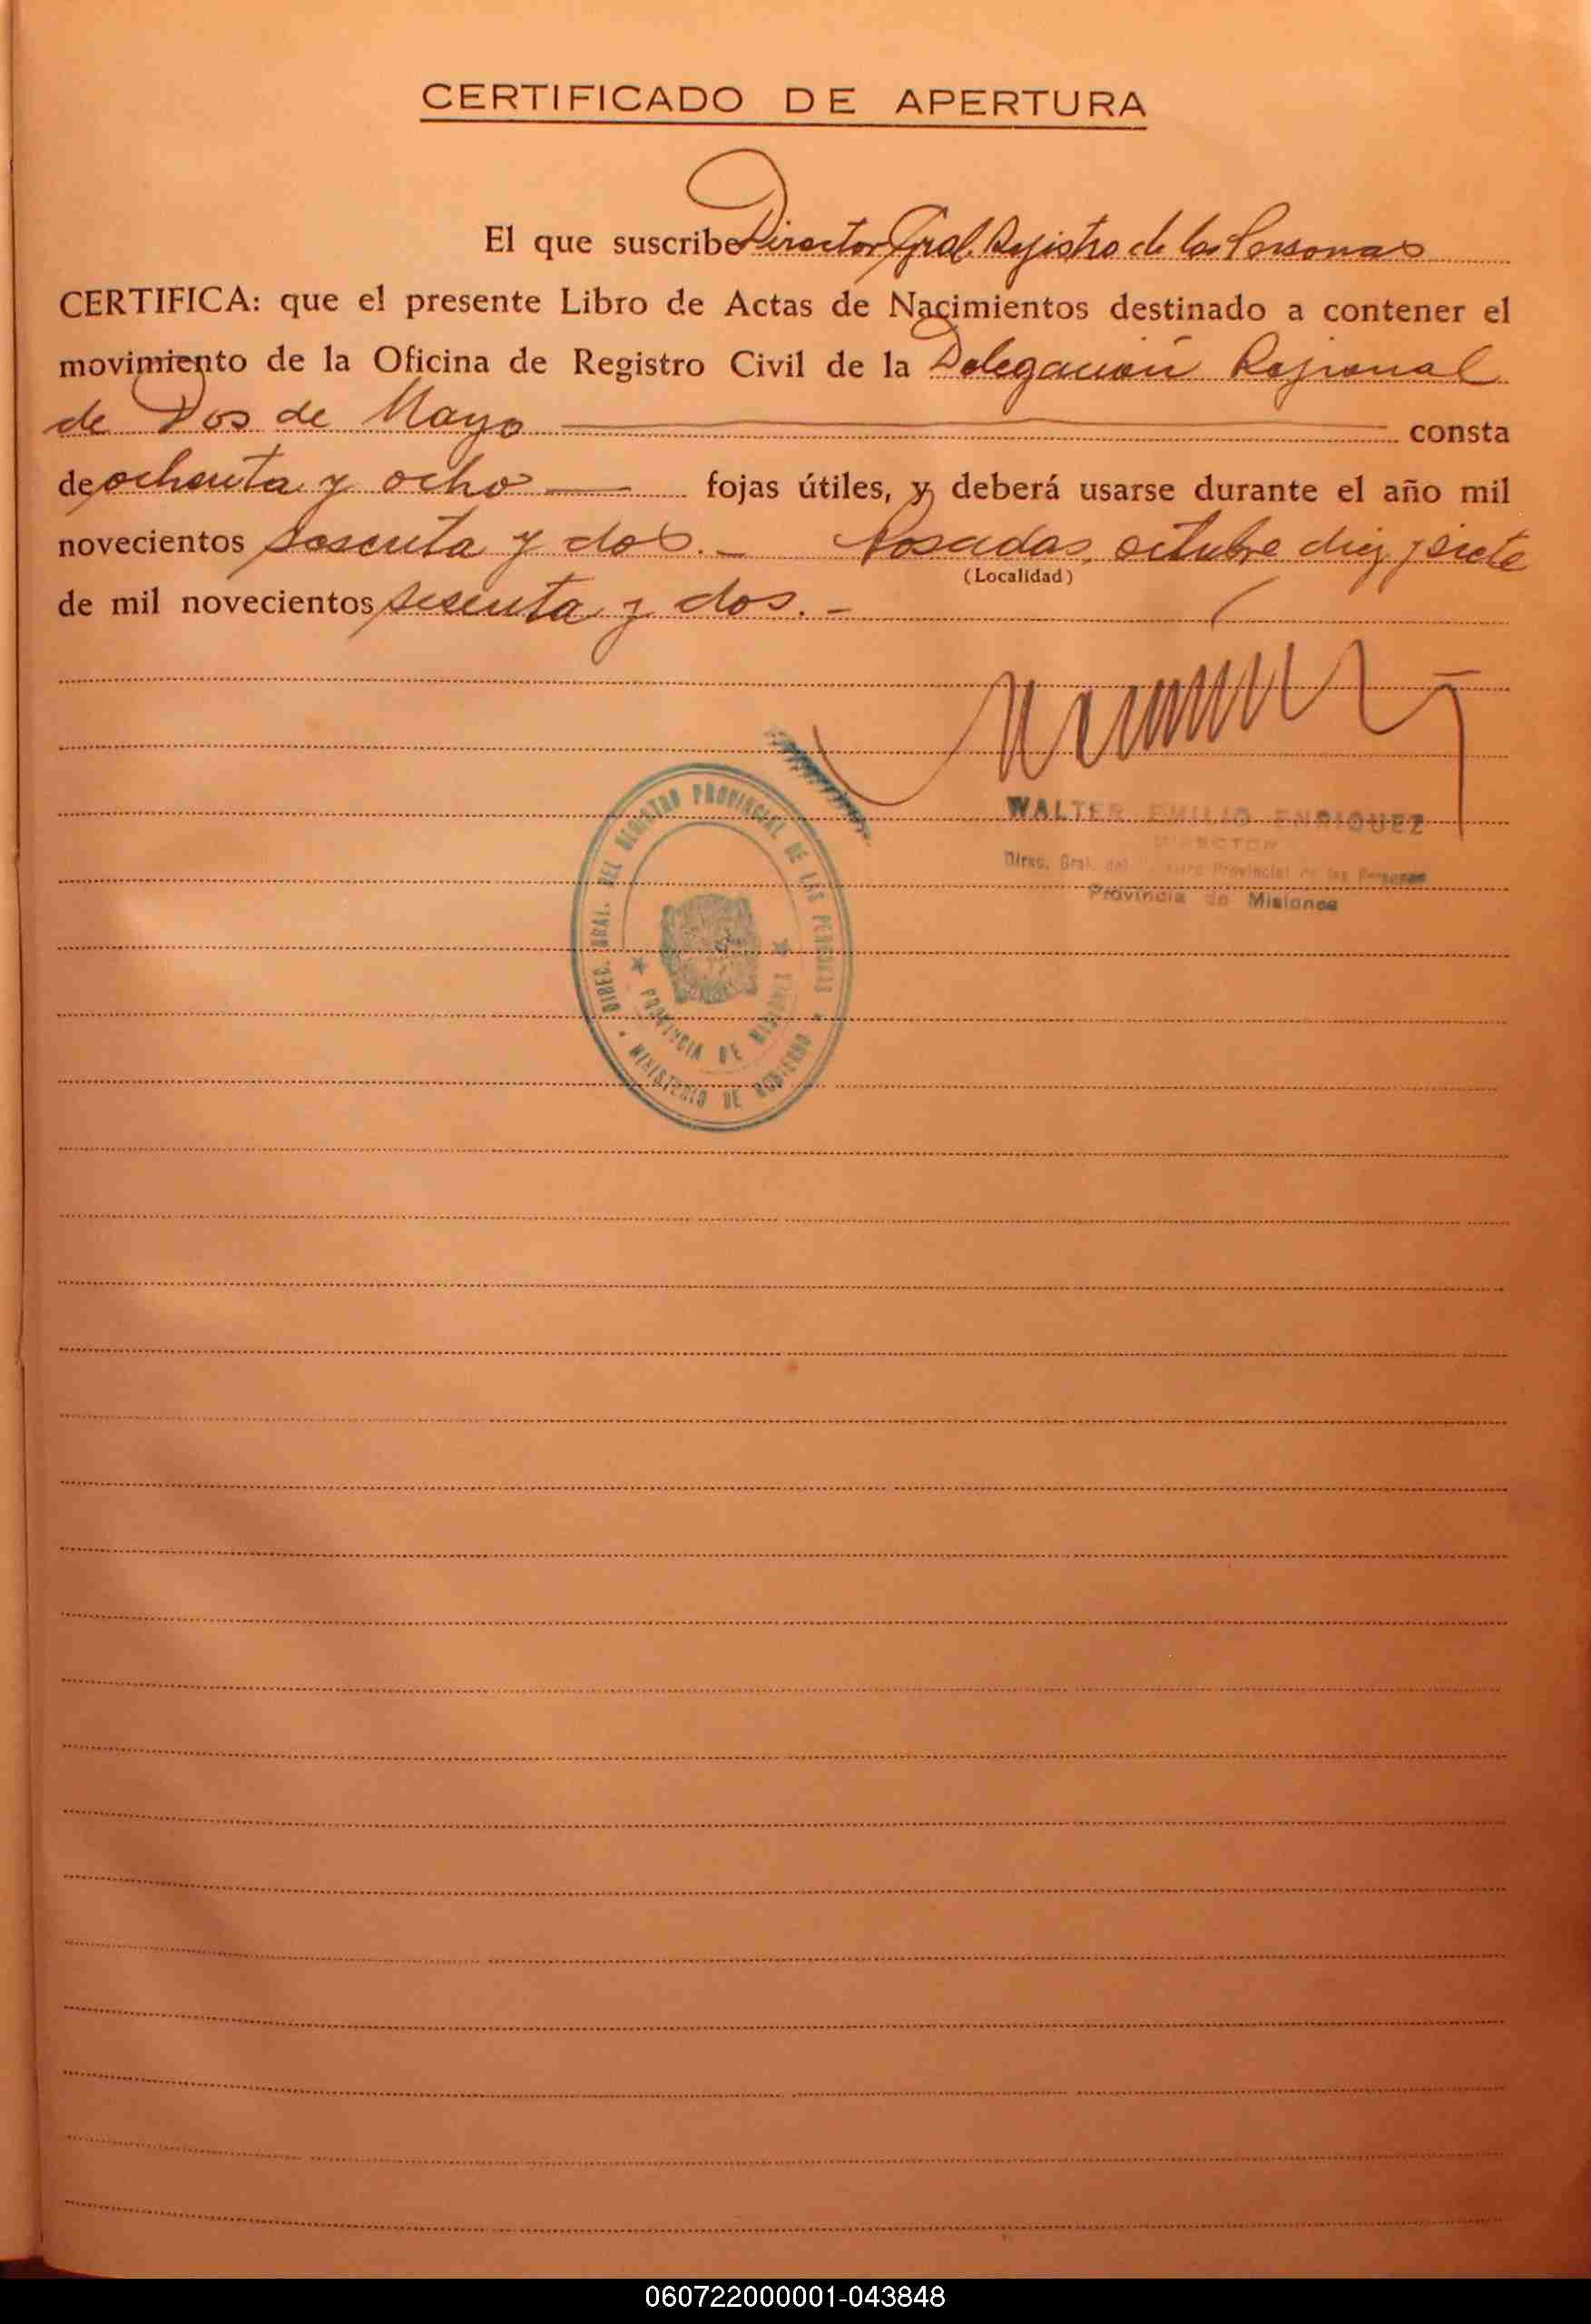 CERTIFICADO DE APERTURA
El que suscribe Director Gral. Registro de las Personas
CERTIFICA: que el presente Libro de Actas de Nacimientos destinado a contener el
movimiento de la Oficina de Registro Civil de la Delegación Regional
de Dos de Mayo consta
de ochenta y ocho fojas útiles, y deberá usarse durante el año mil
novecientos sesenta y dos.- Posadas, octubre diez y siete
(Localidad)
de mil novecientos sesenta y dos.-
WALTER EMILIO ENRIQUEZ
DIRECTOR
Direc. Gral. del Registro Provincial de las Personas
Provincia de Misiones
DIREC. GRAL. DEL REGISTRO PROVINCIAL DE LAS PERSONAS
PROVINCIA DE MISIONES
MINISTERIO DE GOBIERNO
060722000001-043848